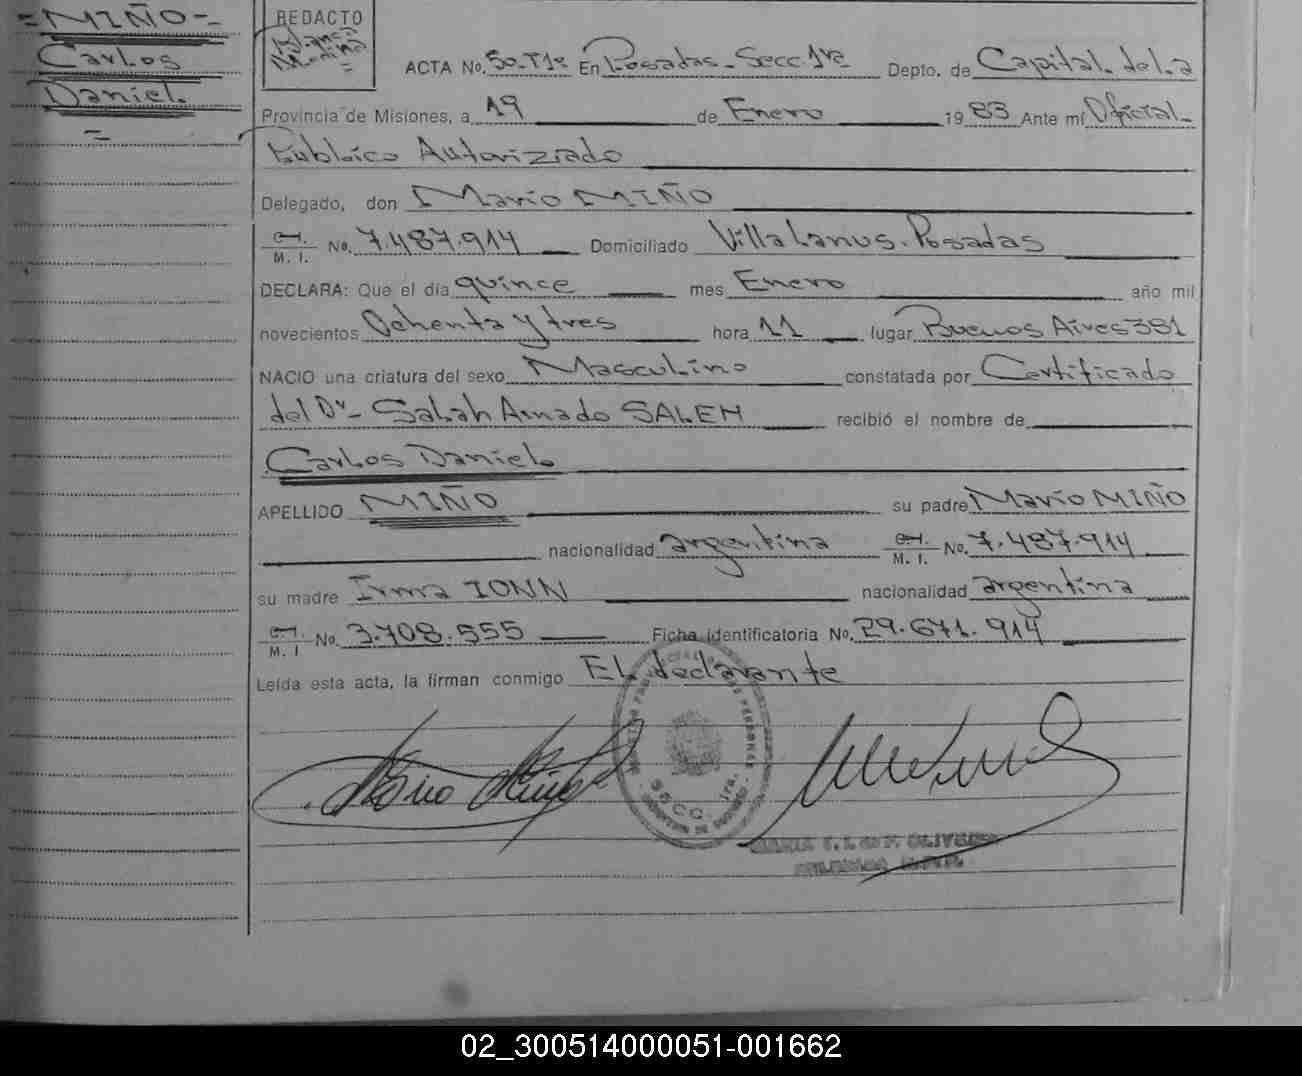 =MIÑO=
Carlos
Daniel
=
REDACTO
ACTA No. 50-T1º En Posadas-Secc. 1ra Depto. de Capital de la
Provincia de Misiones, a 19 de Enero 1983 Ante mí Oficial
Publico Autorizado
Delegado, don Mario MIÑO
M. I. No. 7.487.914 Domiciliado Villa Lanus. Posadas
DECLARA: Que el día quince mes Enero año mil
novecientos Ochenta y tres hora 11 lugar Buenos Aires 381
NACIO una criatura del sexo Masculino constatada por Certificado
del Dr. Salah Amado SALEM recibió el nombre de
Carlos Daniel
APELLIDO MIÑO su padre Mario MIÑO
nacionalidad argentina M. I. No. 7.487.914
su madre Irma IONN nacionalidad argentina
M. I. No. 3.708.555 Ficha Identificatoria No. 29.671.914
Leída esta acta, la firman conmigo El declarante
SECC. 1ra.
02_300514000051-001662